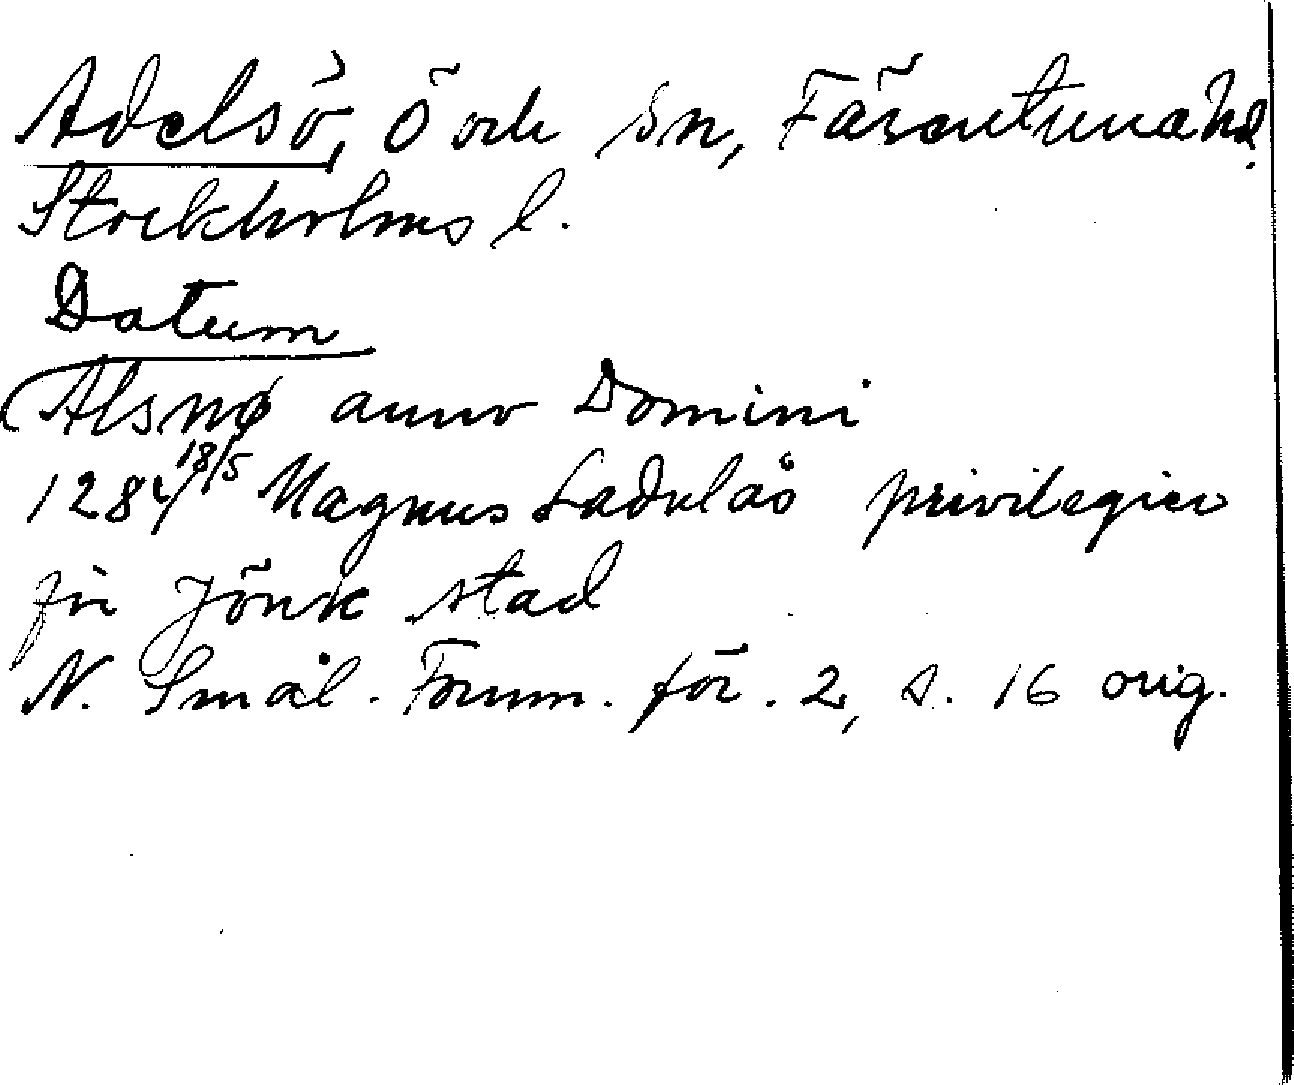 Adelsö, Ö och Sn, Färentuna hd.
Stockholms l.
Datum
Alsnø anno Domini
1284 18/5 Magnus Ladulås privilegier
för Jönk stad
N. Smål. Fornm. för. 2, s. 16 orig.